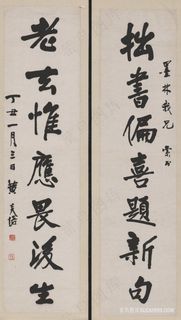 墨林我兄 索书
拙書偏喜題新句
老去惟應畏後生
丁丑一月三日 黄炎培